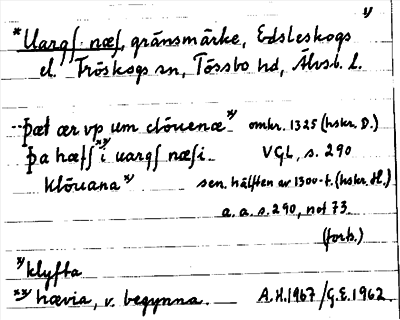 x)
*Uargſ næſ, gränsmärke, Edsleskogs
el. Fröskogs sn, Tössbo hd, Älvsb. l.
--þæt ær vp um clöuenæ x) omkr. 1325 (hskr. D.)
þa hæfſ xx) i uargſ næſi. VGL, s. 290
klöuana x) sen. hälften av 1300-t. (hskr. H.)
a. a. s. 290, not 73
(forts.)
x) klyfta
xx) hævia, v. begynna. A.H. 1967/G.E. 1962.